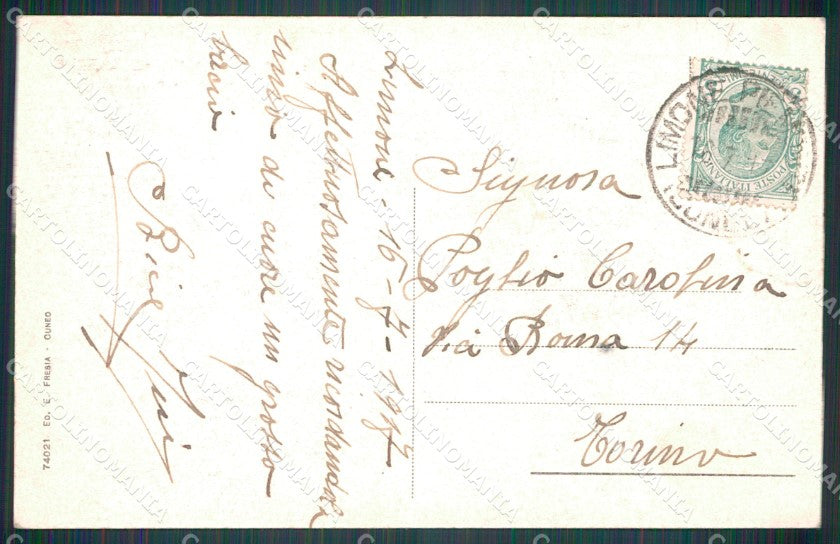 Limone - 16 - 7 - 1917
Affettuosamente ricordandola
invio di cuore un grosso
bacio
Signora
Poglio Carolina
Via Roma 14
Torino
POSTE ITALIANE
LIMONE PIEM
CUNEO
74021 ED. E. FRESIA - CUNEO
CARTOLINOMANIA